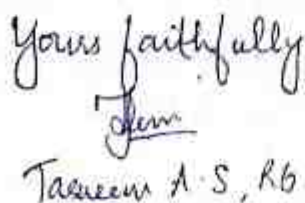 Yours faithfully
Tasneem A.S, RG